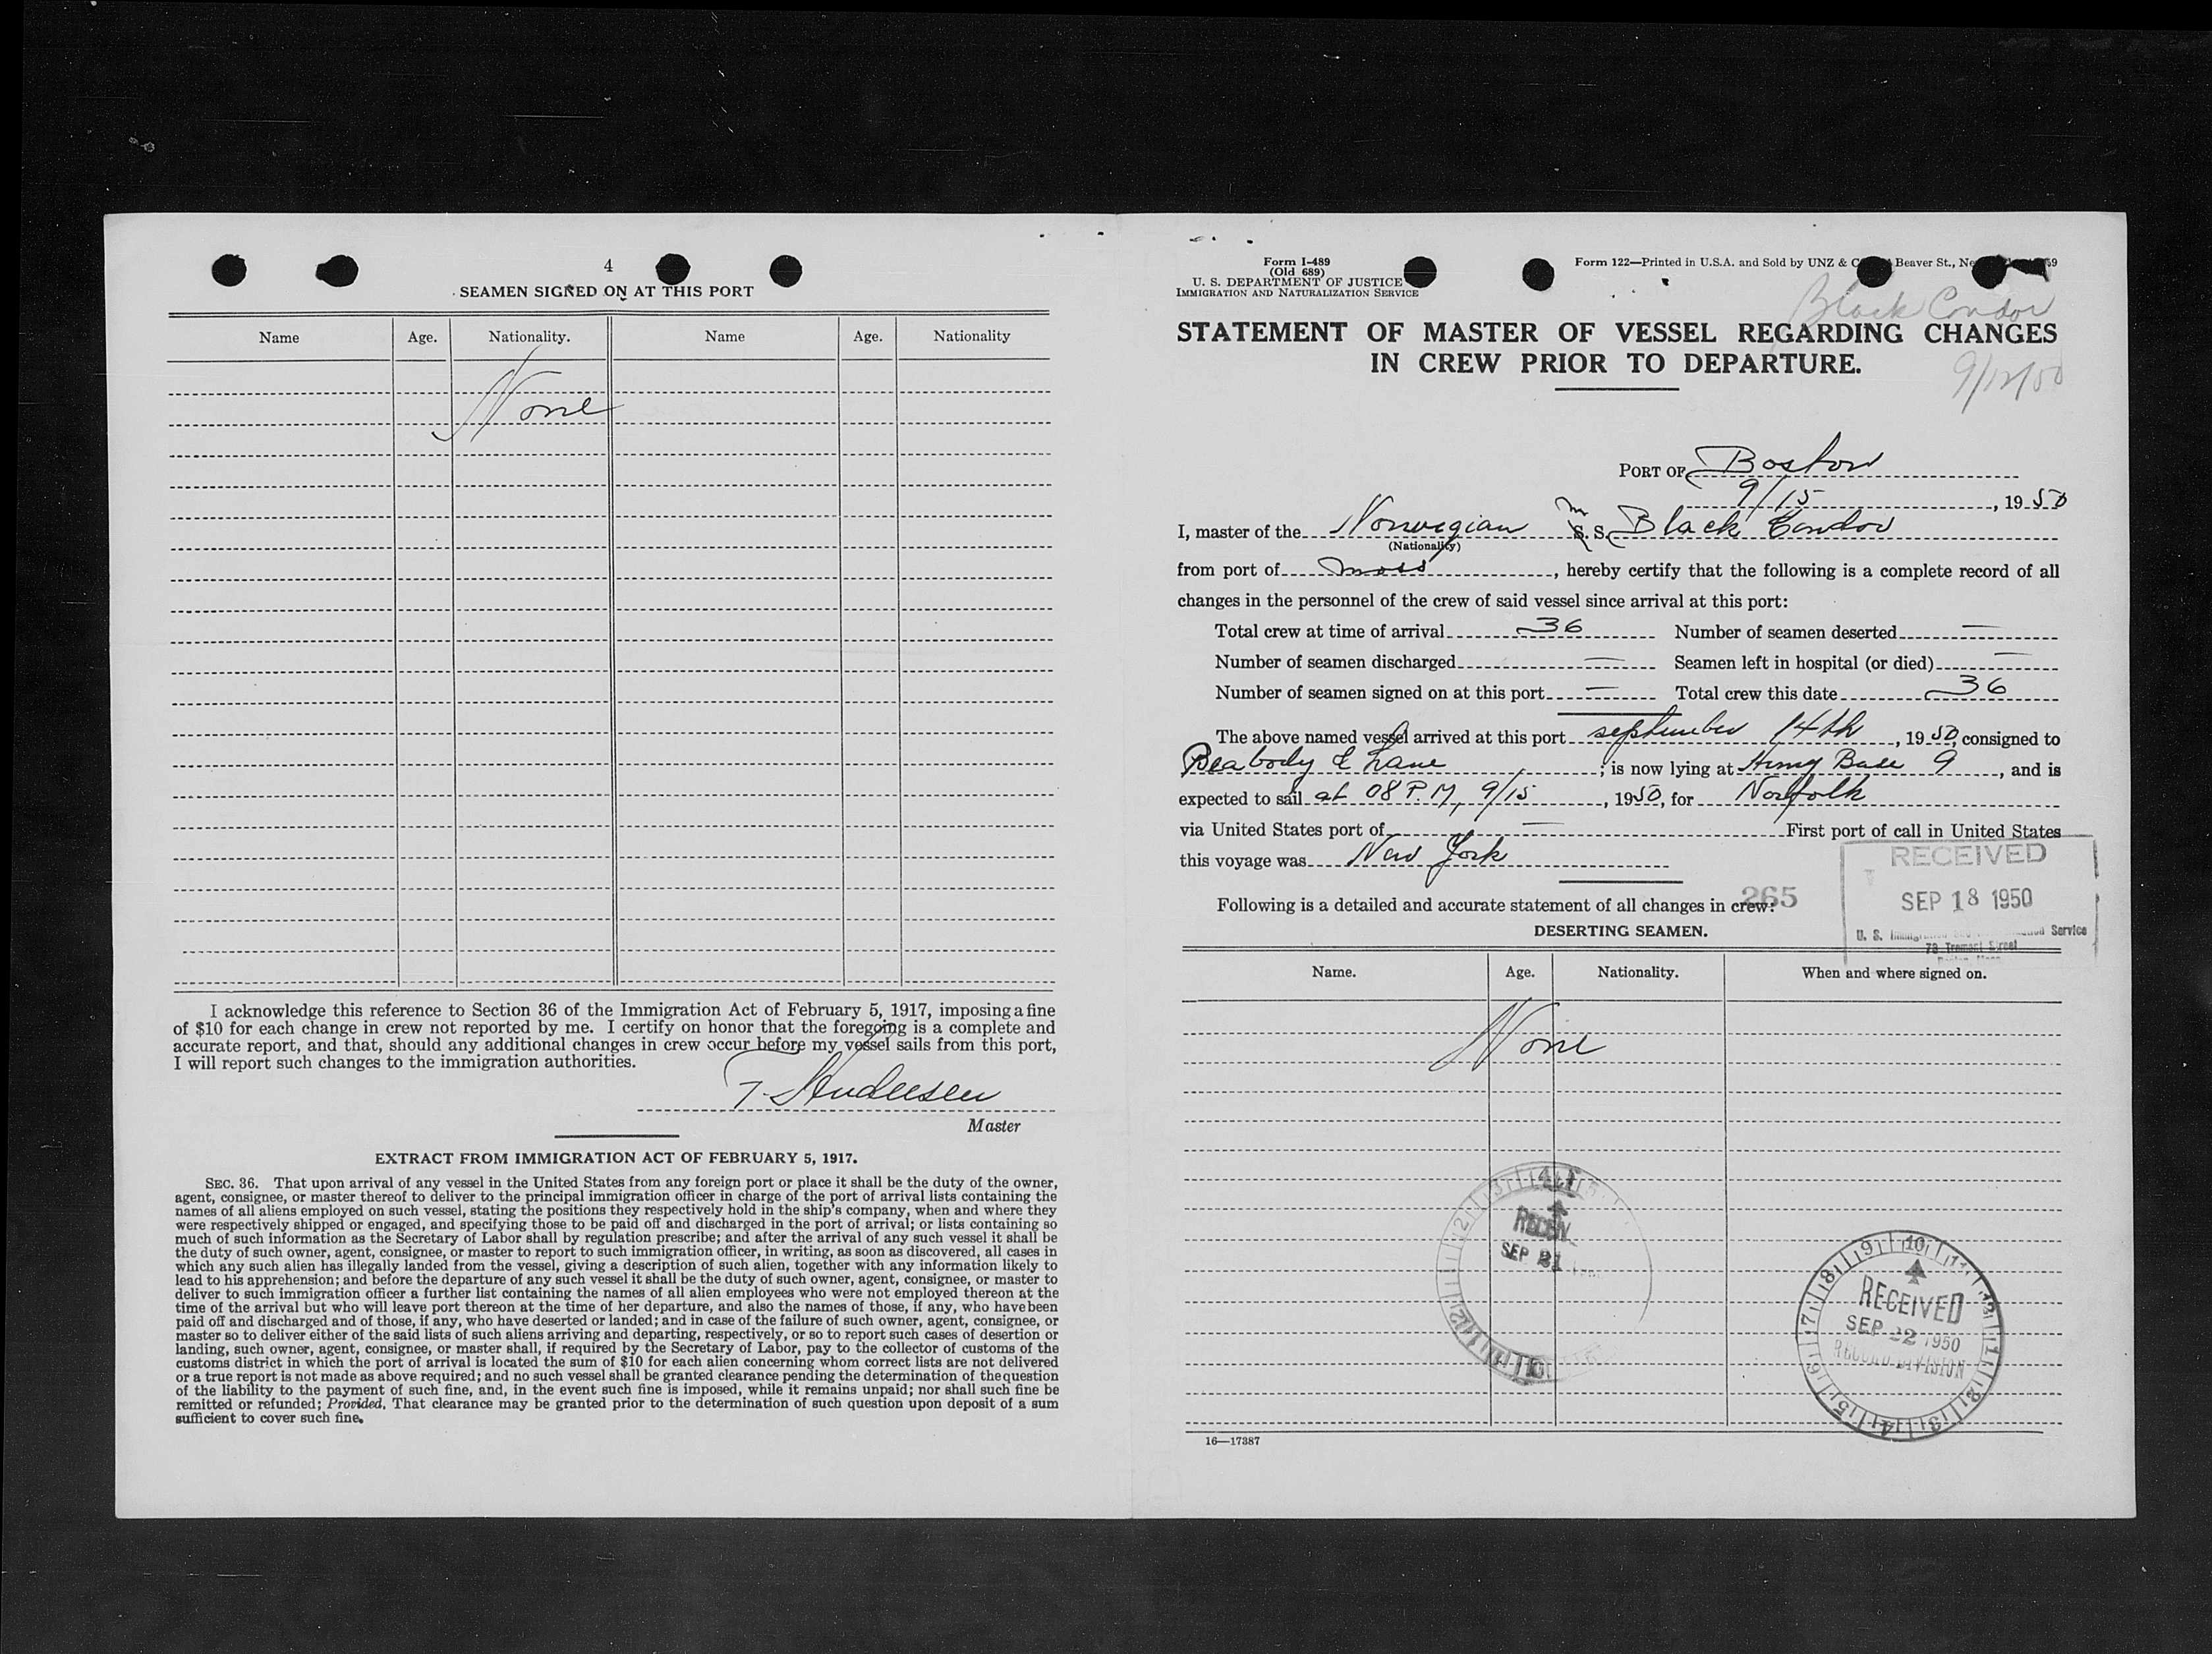 4
SEAMEN SIGNED ON AT THIS PORT
Name Age. Nationality. Name Age. Nationality
None
I acknowledge this reference to Section 36 of the Immigration Act of February 5, 1917, imposing a fine
of $10 for each change in crew not reported by me. I certify on honor that the foregoing is a complete and
accurate report, and that, should any additional changes in crew occur before my vessel sails from this port,
I will report such changes to the immigration authorities.
T. Andersen
Master
EXTRACT FROM IMMIGRATION ACT OF FEBRUARY 5, 1917.
SEC. 36. That upon arrival of any vessel in the United States from any foreign port or place it shall be the duty of the owner,
agent, consignee, or master thereof to deliver to the principal immigration officer in charge of the port of arrival lists containing the
names of all aliens employed on such vessel, stating the positions they respectively hold in the ship's company, when and where they
were respectively shipped or engaged, and specifying those to be paid off and discharged in the port of arrival; or lists containing so
much of such information as the Secretary of Labor shall by regulation prescribe; and after the arrival of any such vessel it shall be
the duty of such owner, agent, consignee, or master to report to such immigration officer, in writing, as soon as discovered, all cases in
which any such alien has illegally landed from the vessel, giving a description of such alien, together with any information likely to
lead to his apprehension; and before the departure of any such vessel it shall be the duty of such owner, agent, consignee, or master to
deliver to such immigration officer a further list containing the names of all alien employees who were not employed thereon at the
time of the arrival but who will leave port thereon at the time of her departure, and also the names of those, if any, who have been
paid off and discharged and of those, if any, who have deserted or landed; and in case of the failure of such owner, agent, consignee, or
master so to deliver either of the said lists of such aliens arriving and departing, respectively, or so to report such cases of desertion or
landing, such owner, agent, consignee, or master shall, if required by the Secretary of Labor, pay to the collector of customs of the
customs district in which the port of arrival is located the sum of $10 for each alien concerning whom correct lists are not delivered
or a true report is not made as above required; and no such vessel shall be granted clearance pending the determination of the question
of the liability to the payment of such fine, and, in the event such fine is imposed, while it remains unpaid; nor shall such fine be
remitted or refunded; Provided, That clearance may be granted prior to the determination of such question upon deposit of a sum
sufficient to cover such fine.
Form I-489
(Old 689)
U. S. DEPARTMENT OF JUSTICE
IMMIGRATION AND NATURALIZATION SERVICE
Form 122—Printed in U.S.A. and Sold by UNZ & Beaver St.,
Black Condor
STATEMENT OF MASTER OF VESSEL REGARDING CHANGES
IN CREW PRIOR TO DEPARTURE.
9/12/50
PORT OF Boston
9/15, 1950
I, master of the Norwegian M S. S. Black Condor
(Nationality)
from port of Moss, hereby certify that the following is a complete record of all
changes in the personnel of the crew of said vessel since arrival at this port:
Total crew at time of arrival 36 Number of seamen deserted —
Number of seamen discharged — Seamen left in hospital (or died) —
Number of seamen signed on at this port — Total crew this date 36
The above named vessel arrived at this port september 14th, 1950, consigned to
Peabody & Lane; is now lying at Army Base 9, and is
expected to sail at 08 P.M, 9/15, 1950, for Norfolk
via United States port of — First port of call in United States
this voyage was New York
RECEIVED
SEP 18 1950
U. S. Service
79 Tremont Street
265
Following is a detailed and accurate statement of all changes in crew:
DESERTING SEAMEN.
Name. Age. Nationality. When and where signed on.
None
SEP 21
RECEIVED
SEP 22 1950
RECORD DIVISION
16—17387